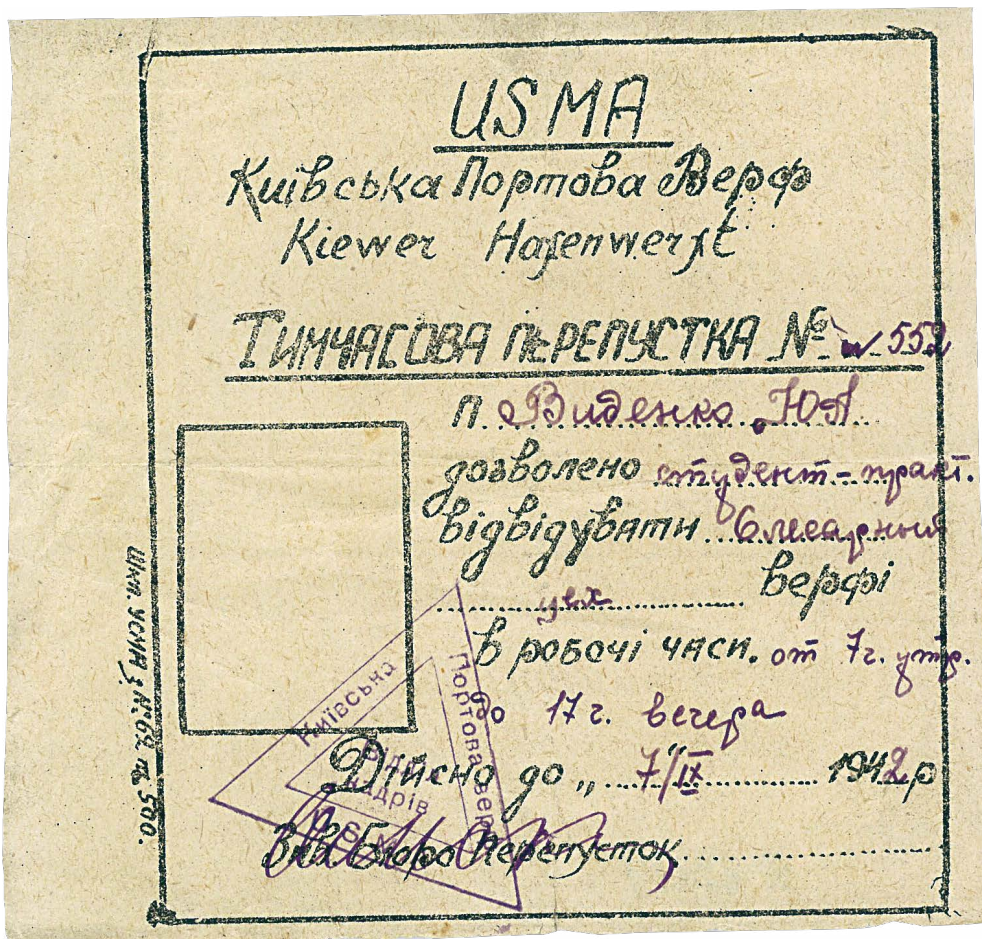 USMA
Київська Портова Верф
Kiewer Hafenwerft
ТИМЧАСОВА ПЕРЕПУСТКА № 552
П. Виденко Ю.П
дозволено студент-практ.
відвідувати Слесарний
цех верфі
в робочі часи. от 7 г. утр.
до 17 г. вечера
Дійсно до „ 7/IX " 1942 р
Зав. Бюро Перепусток
Київська
Портова вер
кадрів
Шт. УСМА З. № 62 т. 500.